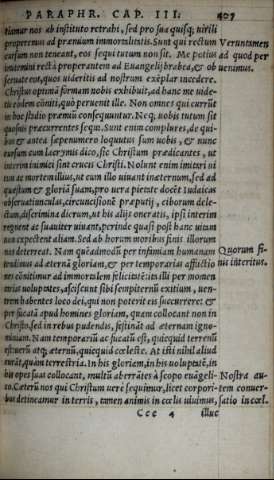 PARAPHR. CAP. III. 407
tiamur nos ab instituto retrahi, sed pro sua quisq; uirili
properemus ad præmium immortalitatis. Sunt qui rectum
cursum non teneant, eos sequi tutum non sit. Me potius
intenti
currentem ad Euangelij brabea, & eos
seruate eos, quos uideritis ad nostrum exemplar incedere.
Christus optimā formam nobis exhibuit, ad hanc me uide-
tis eodem cōniti, quò peruenit ille. Non omnes qui currūt
in hoc stadio præmiū consequuntur. Neq; uobis tutum sit
quosuis præcurrentes sequi. Sunt enim complures, de qui-
bus & antea sæpenumero loquutus sum uobis, & nunc
etiam cum lacrymis dico, sic Christum prædicantes, ut
interim inimici sint crucis Christi. Nolunt enim imitari ui
tam ac mortem illius, ut cum illo uiuant in æternum, sed ad
quæstum & gloriā suam, pro uera pietate docēt Iudaicas
obseruatiunculas, circuncisionē præputij, ciborum dele-
ctum, discrimina dierum, ut his alijs oneratis, ipsi interim
regnent ac suauiter uiuant, perinde quasi post hanc uitam
non expectent aliam. Sed ab horum moribus finis illorum
uos deterreat. Nam quēadmodū per infamiam humanam
tendimus ad æternā gloriam, & per temporarias afflictio
nes cōnitimur ad immortalem felicitatē: ita illi per momen
tarias uoluptates, asciscunt sibi sempiternū exitium, uen-
trem habentes loco dei, qui non poterit eis succurrere: &
per fucatā apud homines gloriam, quam collocant non in
Christo, sed in rebus pudendis, festināt ad æternam igno-
miniam. Nam temporariū ac fucatū est, quicquid terrenū
est: uerū atq; æternū, quicquid cœleste. At isti nihil aliud
curāt, quàm terrestria. In his gloriam, in his uoluptatē, in
his opes suas collocant, multū aberrātes à scopo euāgeli-
co. Cæterū nos qui Christum uerè sequimur, licet corpori-
bus detineamur in terris, tamen animis in cœlis uiuimus,
Ccc 4 illuc
Veruntamen
ad quod per
uenimus.
Quorum fi-
nis interitus.
Nostra au-
tem conuer-
satio in cœl.